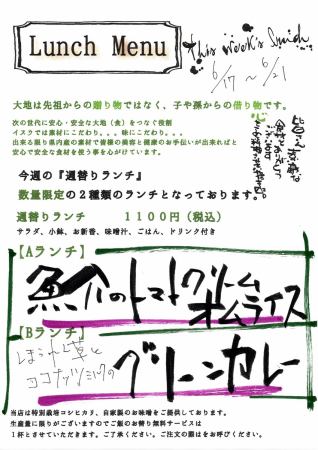 Lunch Menu
This week's
6/17 〜 6/21
大地は先祖からの贈り物ではなく、子や孫からの借り物です。
次の世代に安心・安全な大地（食）をつなぐ役割
イスクでは素材にこだわり。。。味にこだわり。。。
出来る限り県内産の素材で皆様の美容と健康のお手伝いが出来ればと
安心で安全な食材を使う事を心がけています。
今週の『週替りランチ』
数量限定の２種類のランチとなっております。
週替りランチ　　１１００円（税込）
サラダ、小鉢、お新香、味噌汁、ごはん、ドリンク付き
【Aランチ】
魚介のトマトクリーム
オムライス
【Bランチ】
ほうれん草と
ココナッツミルクの
グリーンカレー
当店は特別栽培コシヒカリ、自家製のお味噌をご提供しております。
生産量に限りがございますのでご飯のお替り無料サービスは
１杯とさせていただきます。ご了承ください。ご注文の際はをお呼びください。